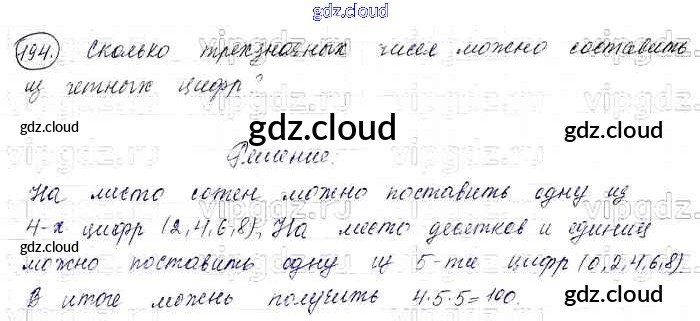 gdz.cloud
194. Сколько трехзначных чисел можно составить
из четных цифр?
gdz.cloud gdz.cloud gdz.cloud
Решение:
На место сотен можно поставить одну из
4-х цифр (2,4,6,8). На место десятков и единиц
можно поставить одну из 5-ти цифр (0,2,4,6,8)
В итоге можем получить 4·5·5=100.
gdz.cloud gdz.cloud gdz.cloud
vipgdz.ru vipgdz.ru vipgdz.ru